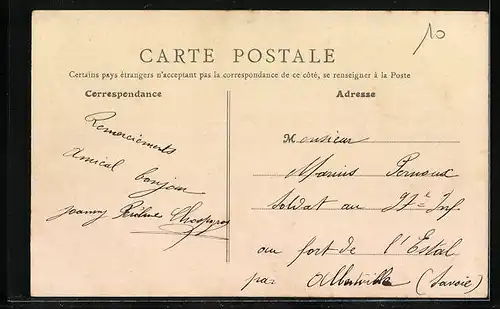 10
CARTE POSTALE
Certains pays étrangers n'acceptant pas la correspondance de ce côté, se renseigner à la Poste
Correspondance
Remerciements
Amical bonjour
Adresse
Monsieur
Marius
Soldat au 97e Inf
au fort de l'Estal
par Albertville (Savoie)